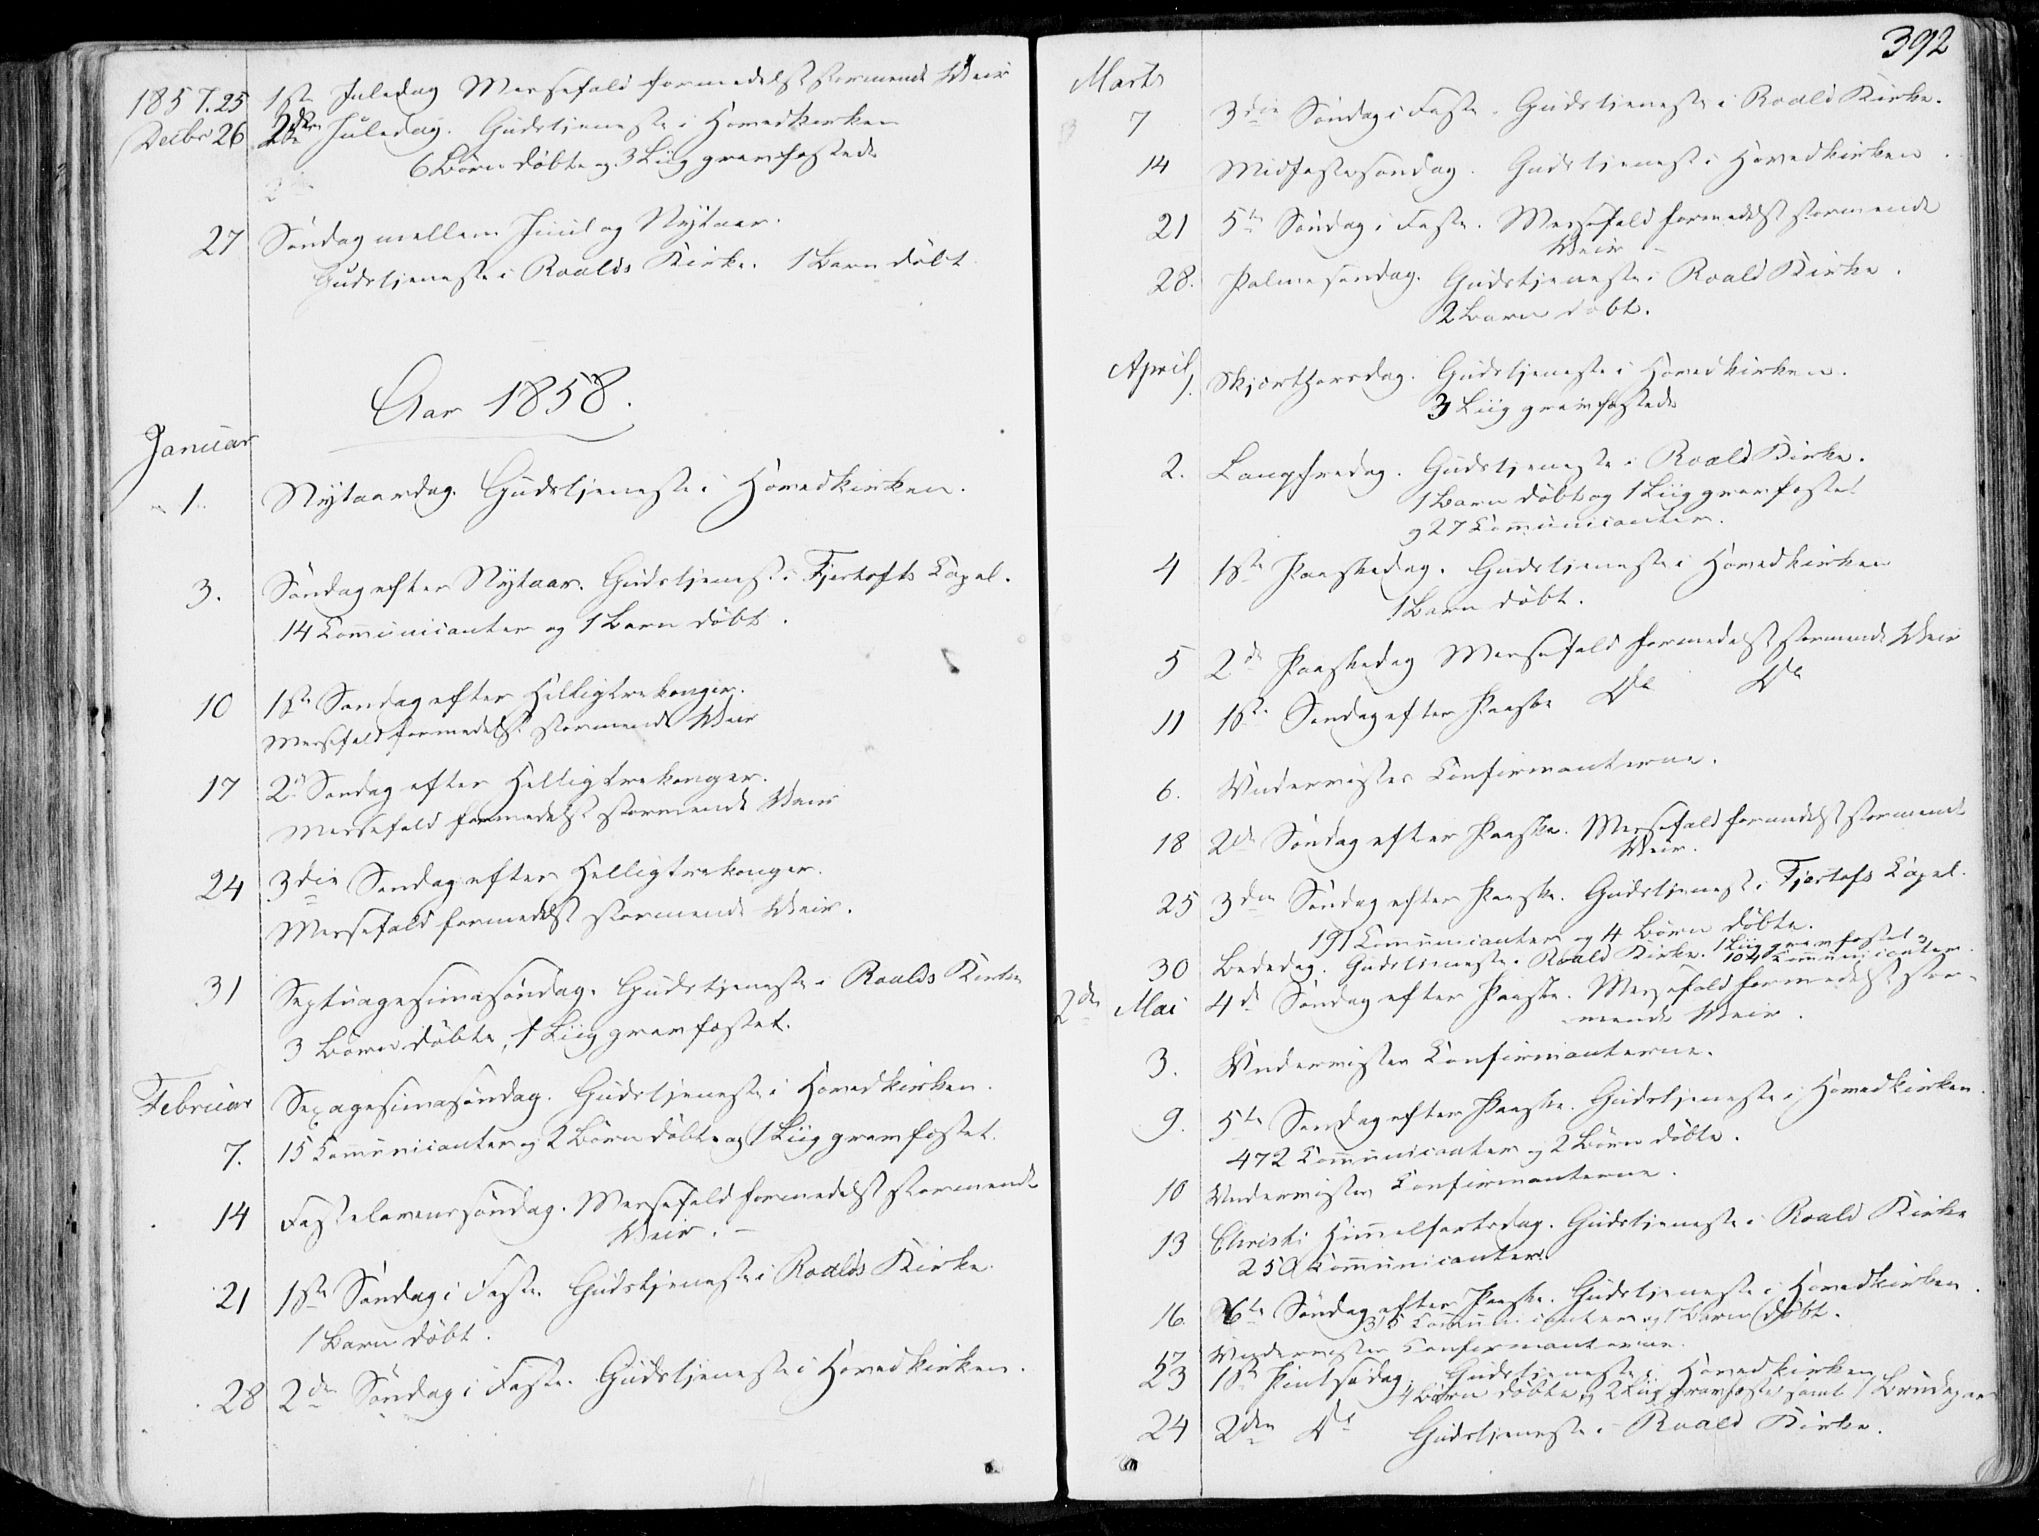 1857.25 1ste Juledag Messefald formedelst stormende Veir
Decbr 26 2den Juledag. Gudstjeneste i Hovedkirken
6 Børn døbte og 3 Liig gravfæstede
27 Søndag mellem Juul og Nytaar.
Gudstjeneste i Roalds Kirke. 1 Barn døbt
Aar 1858.
Januar
1. Nytaarsdag. Gudstjeneste i Hovedkirken.
3. Søndag efter Nytaar. Gudstjeneste i Fjertofts Capel.
14 Communicanter og 1 Barn døbt.
10 1ste Søndag efter Helligtrekonger.
Messefald formedelst stormende Veir
17 2d Søndag efter Helligtrekonger.
Messefald formedelst stormende Veir
24 3die Søndag efter Helligtrekonger.
Messefald formedelst stormende Veir.
31 Septuagesimasøndag. Gudstjeneste i Roalds Kirke
3 Børn døbte, 1 Liig gravfæstet.
Februar Sexagesimasøndag. Gudstjeneste i Hovedkirken.
7. 15 Communicanter og 2 Børn døbte og 1 Liig gravfæstet.
14 Fastelavenssøndag. Messefald formedelst stormende
Veir. –
21 1ste Søndag i Faste. Gudstjeneste i Roalds Kirke.
1 Barn døbt.
28 2den Søndag i Faste. Gudstjeneste i Hovedkirken.
392
Marts
7 3die Søndag i Faste. Gudstjeneste i Roald Kirke.
14 Midfastesøndag. Gudstjeneste i Hovedkirken.
21 5te Søndag i Faste. Messefald formedelst stormende
Veir –
28. Palmesøndag. Gudstjeneste i Roald Kirke.
2 Børn døbt.
April
1. Skjærthorsdag. Gudstjeneste i Hovedkirken.
3 Liig gravfæstede
2. Langfredag. Gudstjeneste i Roald Kirke.
1 Barn døbt og 1 Liig gravfæstet
og 27 Communicanter.
4 1ste Paaskedag. Gudstjeneste i Hovedkirken
1 Barn døbt.
5 2d Paaskedag Messefald formedelst stormende Veir
11 1ste Søndag efter Paaske Do Do
6. Undervistes Confirmanterne.
18 2de Søndag efter Paaske. Messefald formedelst stormende
Veir.
25 3die Søndag efter Paaske. Gudstjeneste i Fjertofts Capel.
191 Communicanter og 4 Børn døbte.
30 Bededag. Gudstjeneste i Roald Kirke. 1 Liig gravfæstet
104 Communicanter.
2den Mai 4d Søndag efter Paaske. Messefald formedelst stor-
mende Veir.
3. Undervistes Confirmanterne.
9. 5te Søndag efter Paaske. Gudstjeneste i Hovedkirken.
472 Communicanter og 2 Børn døbte.
10 Undervistes Confirmanterne.
13 Christi Himmelfartsdag. Gudstjeneste i Roald Kirke
250 Communicanter.
16. 6te Søndag efter Paaske. Gudstjeneste i Hovedkirken.
315 Communicanter og 1 Barn døbt.
17 Undervistes Confirmanterne.
23 1ste Pintsedag. Gudstjeneste i Hovedkirken
4 Børn døbte og 2 Liig gravfæstet samt 1 Brudepar
24 2den Do Gudstjeneste i Roald Kirke.